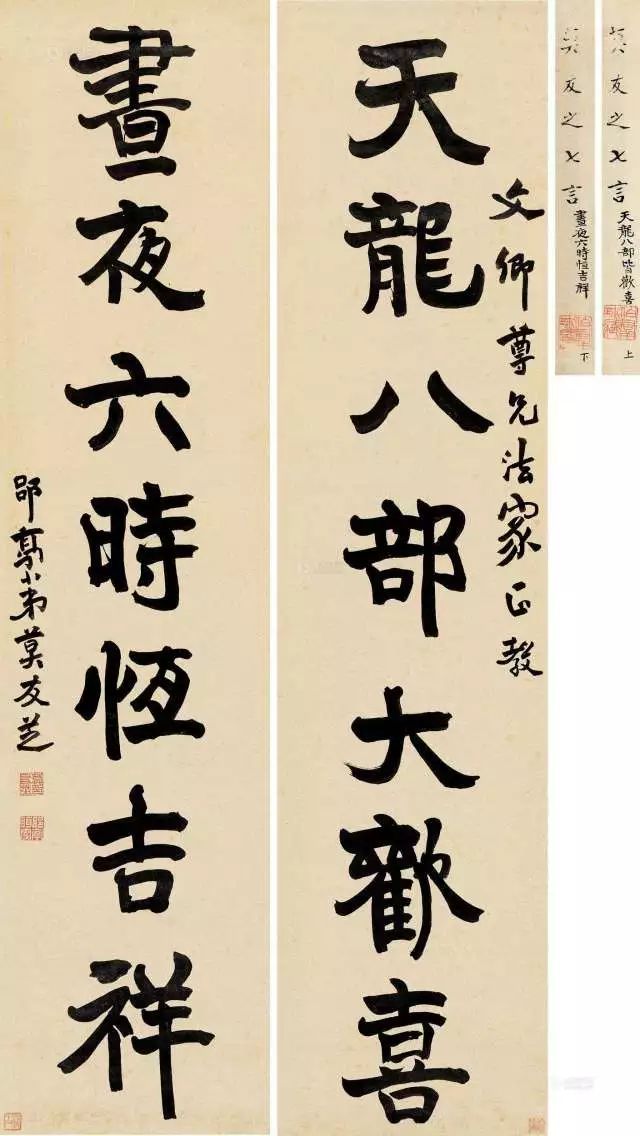 友之七言
天龍八部皆歡喜
上
友之七言
晝夜六時恒吉祥
下
文卿尊兄法家正教
天龍八部大歡喜
晝夜六時恆吉祥
郘亭小弟莫友芝